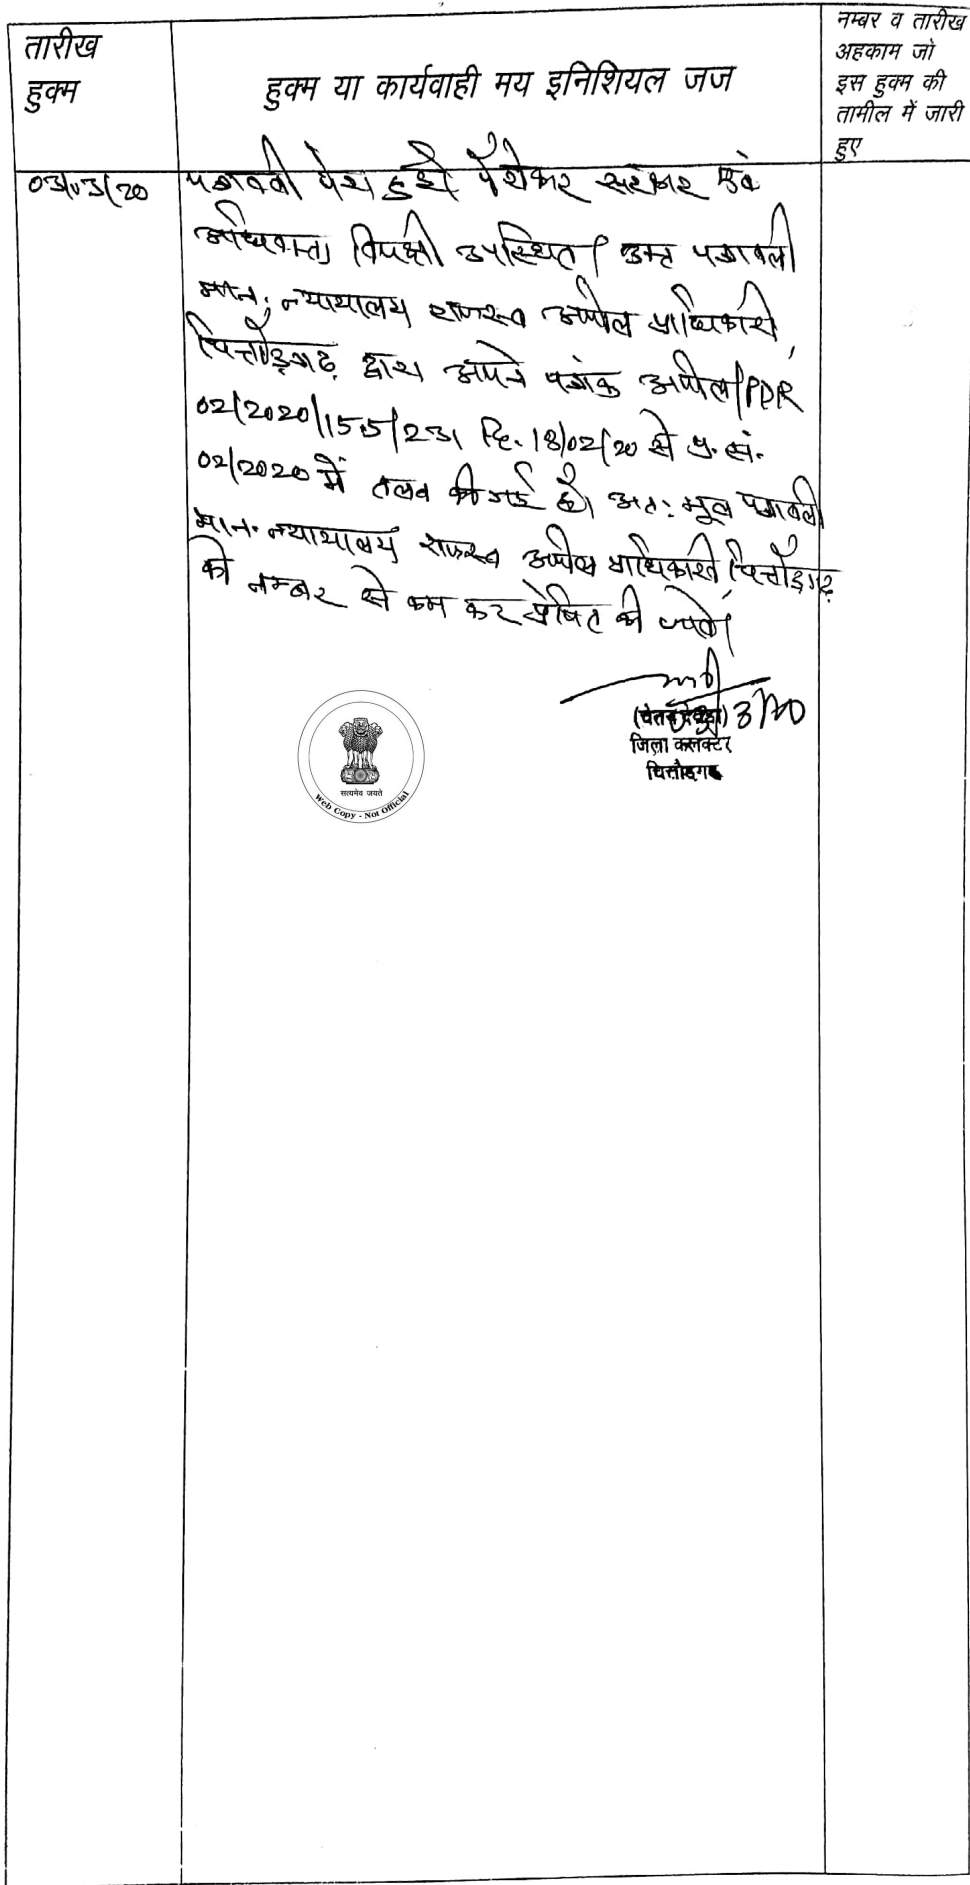 तारीख
हुक्म
हुक्म या कार्यवाही मय इनिशियल जज
नम्बर व तारीख
अहकाम जो
इस हुक्म की
तामील में जारी
हुए
03/03/20
पत्रावली पेश हुई। पेशकार सरकार एवं
अधिवक्ता विपक्षी उपस्थित। उक्त पत्रावली
मान. न्यायालय राजस्व अपील प्राधिकारी,
चित्तौड़गढ़ द्वारा अपने पत्रांक अपील/PDR
02/2020/155/231 दि. 18/02/20 से प्र. सं.
02/2020 में तलब की गई है। अतः मूल पत्रावली
मान. न्यायालय राजस्व अपील प्राधिकारी चित्तौड़गढ़
को नम्बर से कम कर प्रेषित की जावे।
(चेतन देवड़ा)
जिला कलक्टर
चित्तौड़गढ़
सत्यमेव जयते
Web Copy - Not Official